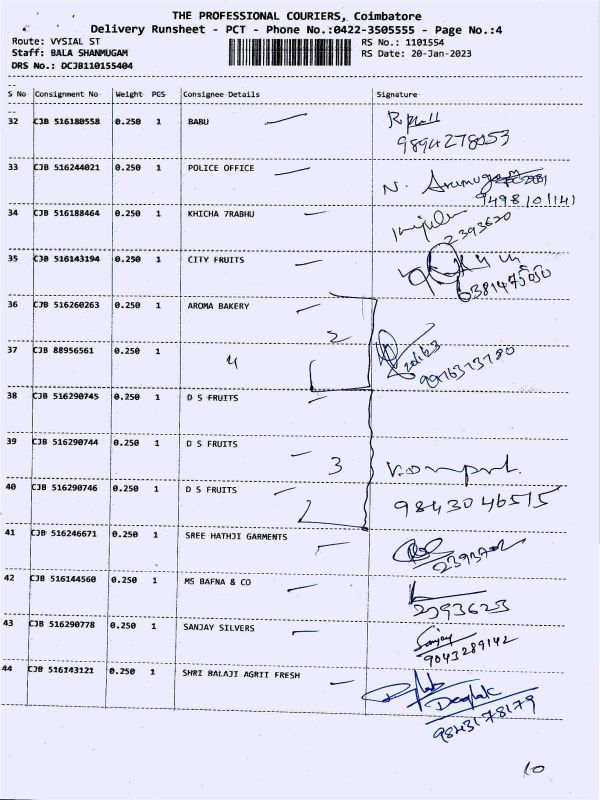 THE PROFESSIONAL COURIERS, Coimbatore
Delivery Runsheet - PCT - Phone No.:0422-3505555 - Page No.:4
Route: VYSIAL ST RS No.: 1101554
Staff: BALA SHANMUGAM RS Date: 20-Jan-2023
DRS No.: DCJB110155404
S No Consignment No Weight PCS Consignee Details Signature
32 CJB 516180558 0.250 1 BABU
9894278053
33 CJB 516244021 0.250 1 POLICE OFFICE
N. Arumugam
9498101141
34 CJB 516188464 0.250 1 KHICHA 7RABHU
2393620
35 CJB 516143194 0.250 1 CITY FRUITS
36 CJB 516260263 0.250 1 AROMA BAKERY
2
37 CJB 88956561 0.250 1
4
38 CJB 516290745 0.250 1 D S FRUITS
39 CJB 516290744 0.250 1 D S FRUITS
3
40 CJB 516290746 0.250 1 D S FRUITS
9843046515
41 CJB 516246671 0.250 1 SREE HATHJI GARMENTS
42 CJB 516144560 0.250 1 MS BAFNA & CO
2393623
43 CJB 516290778 0.250 1 SANJAY SILVERS
Sanjay
9043289142
44 CJB 516143121 0.250 1 SHRI BALAJI AGRII FRESH
Deepak
9843178179
10